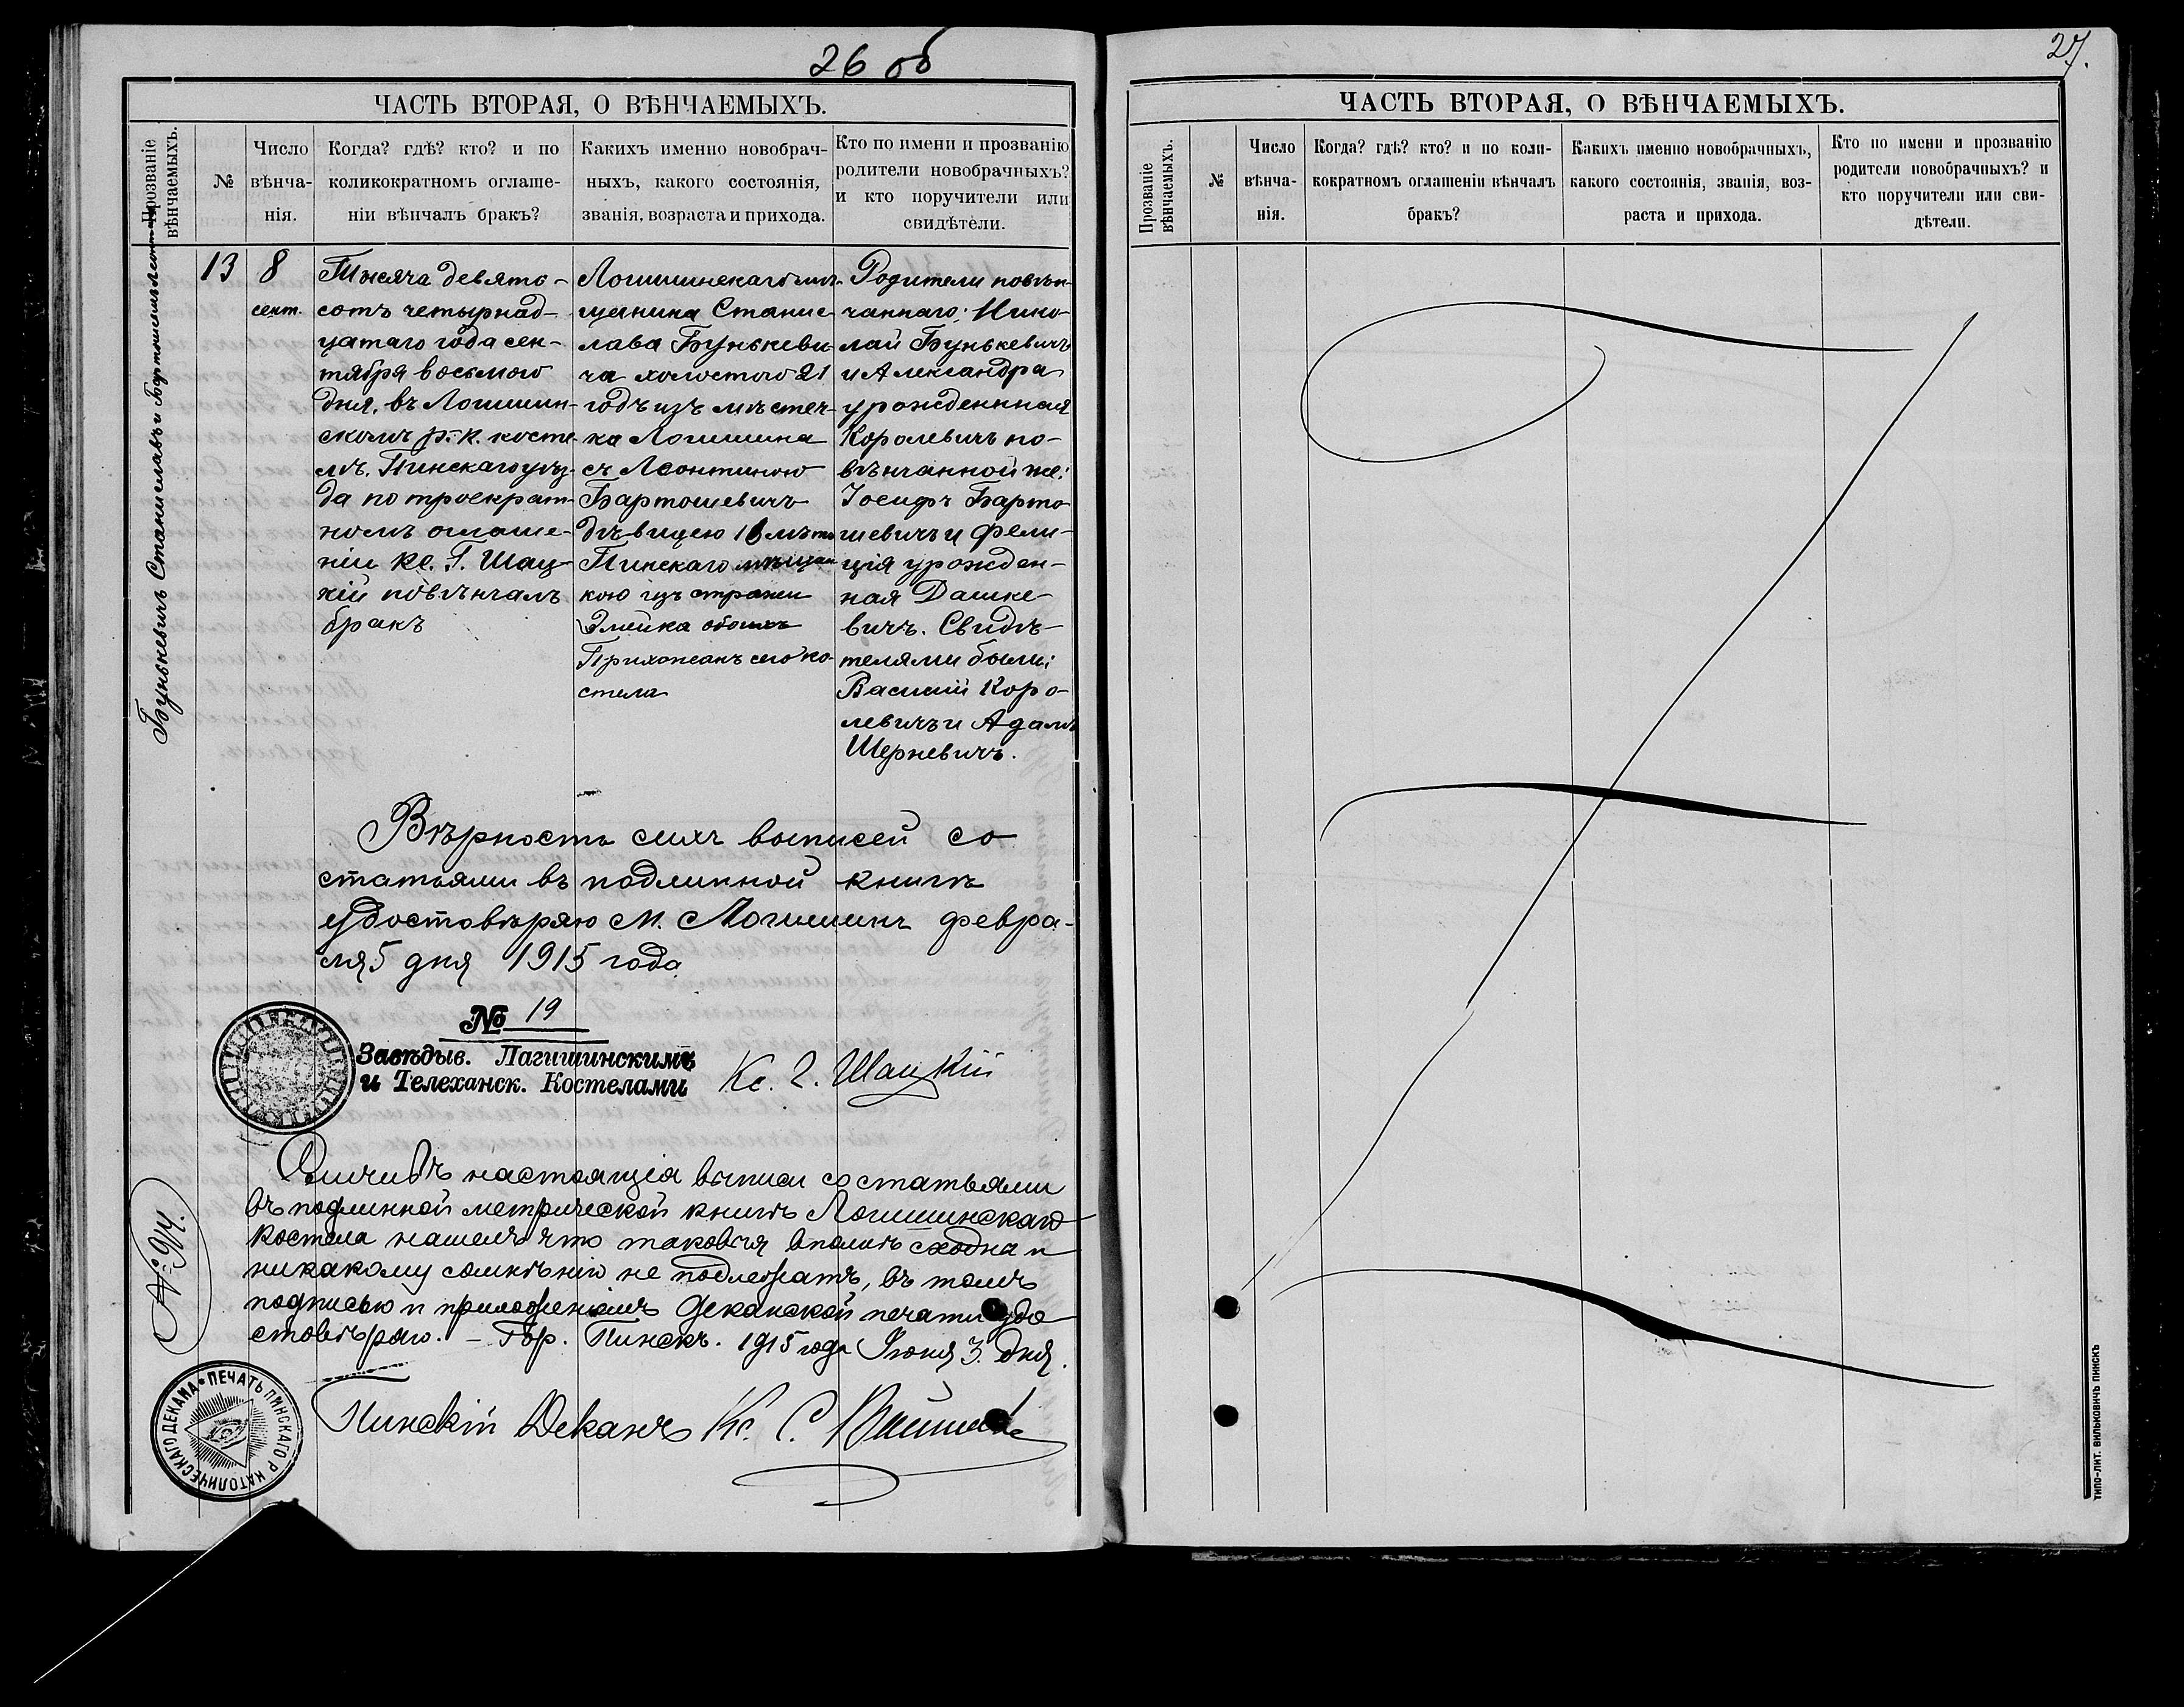 26 об
ЧАСТЬ ВТОРАЯ, О ВѢНЧАЕМЫХЪ.
Прозваніе
вѣнчаемыхъ.
№
Число
вѣнча-
нія.
Когда? гдѣ? кто? и по
коликократномъ оглаше-
ніи вѣнчалъ бракъ?
Какихъ именно новобрач-
ныхъ, какого состоянія,
званія, возраста и прихода.
Кто по имени и прозванію
родители новобрачныхъ?
и кто поручители или
свидѣтели.
Бунькевичъ Станиславъ и
13
8
сент.
Тысяча девять-
сотъ четырнад-
цатаго года сен-
тября восьмого
дня, въ Логишин-
скомъ р.-к. косте-
лѣ, Пинскаго уѣз-
да по троекрат-
номъ оглаше-
ніи Кс. Г. Шац-
кій повѣнчалъ
бракъ
Логишинскаго мѣ-
щанина Станис-
лава Бунькеви-
ча холостого 21
годъ изъ мѣстеч-
ка Логишина
съ Леонтиною
Бартошевичъ
дѣвицею 18 лѣтъ
Пинскаго мѣщан
кою изъ стражи
обоихъ
Прихожанъ сего ко-
стела
Родители повѣн-
чаннаго: Нико-
лай Бунькевичъ
и Александра
урожденнная
Королевичъ по-
вѣнчанной же:
Іосифъ Барто-
шевичъ и Фели-
ція урожден-
ная Дашке-
вичъ. Свидѣ-
телями были:
Василій Коро-
левичъ и Адамъ
Шерневичъ.
Вѣрность сихъ выписей со
статьями въ подлинной книгѣ
удостовѣряю М. Логишинъ февра-
ля 5 дня 1915 года
№ 19
Завѣдыв. Лагишинскимъ
и Телеханск. Костелами
Кс. Г. Шацкій
Сличивъ настоящія выписи со статьями
въ подлинной метрической книгѣ Логишинскаго
Костела нашелъ что таковыя вполнѣ сходна и
никакому сомнѣнію не подлежатъ, въ томъ
подписью и приложеніемъ Деканской печати удо
стовѣряю. – Гор. Пинскъ. 1915 года Іюня 3. дня.
Пинскій Деканъ Кс. С.
ПЕЧАТЬ ПИНСКАГО Р КАТОЛИЧЕСКАГО ДЕКАНА
27.
ЧАСТЬ ВТОРАЯ, О ВѢНЧАЕМЫХЪ.
Прозваніе
вѣнчаемыхъ.
№
Число
вѣнча-
нія.
Когда? гдѣ? кто? и по коли-
кократномъ оглашеніи вѣнчалъ
бракъ?
Какихъ именно новобрачныхъ,
какого состоянія, званія, воз-
раста и прихода.
Кто по имени и прозванію
родители новобрачныхъ? и
кто поручители или сви-
дѣтели.
ТИПО-ЛИТ. ВИЛЬКОВИЧЪ ПИНСКЪ